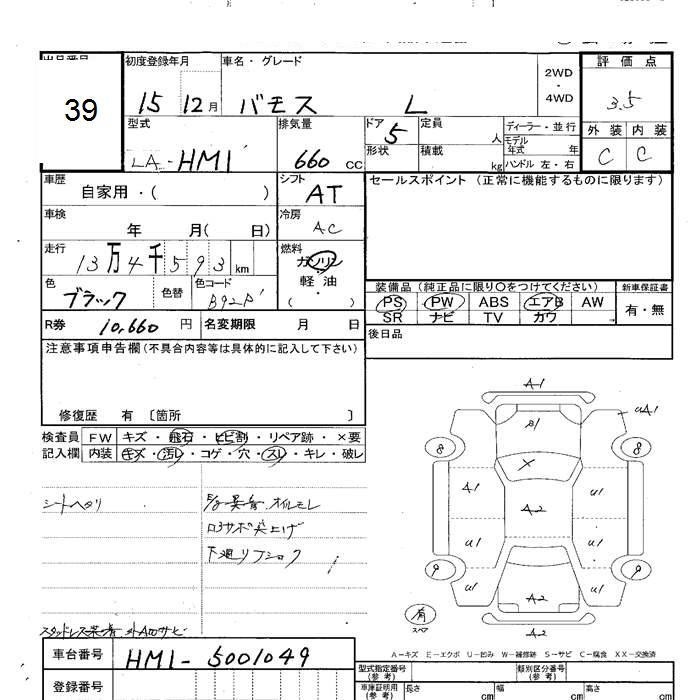 39
初度登録年月 車名・グレード 評価点
15 12月 バモス L 2WD・4WD 3.5
型式 排気量 ドア 定員 ディーラー・並行 外装 内装
LA-HM1 660 CC 5 人 モデル年式 年 C C
形状 積載 kg ハンドル 左・右
車歴 シフト セールスポイント(正常に機能するものに限ります)
自家用・( ) AT
車検 冷房
年 月( 日) AC
走行 燃料
13万4千593km ガソリン
色 色替 色コード 軽・油
ブラック B92P ( )
装備品(純正品に限り〇をつけてください) 新車保証書
PS PW ABS エアB AW 有・無
SR ナビ TV カワ
R券 10,660円 名変期限 月 日 後日品
注意事項申告欄(不具合内容等は具体的に記入して下さい)
修復歴 有 〔箇所 〕
検査員 FW キズ・飛石・ヒビ割・リペア跡・×要
記入欄 内装 キズ・汚レ・コゲ・穴・スレ・キレ・破レ
シートヘタリ E/g異音 オイルモレ
ロアサポ突上げ
下廻リフショク
スタッドレス
A1
B1 UA1
8 8
X
A1 A2 U1
U1 U1
9 9
U1 A2 U1
有 スペア
A2
A-キズ E-エクボ U-凹み W-補修跡 S-サビ C-腐食 XX-交換済
車台番号 HM1-5001049
型式指定番号(参考) 類別区分番号(参考)
登録番号 車庫証明用(参考) 長さ cm 幅 cm 高さ cm